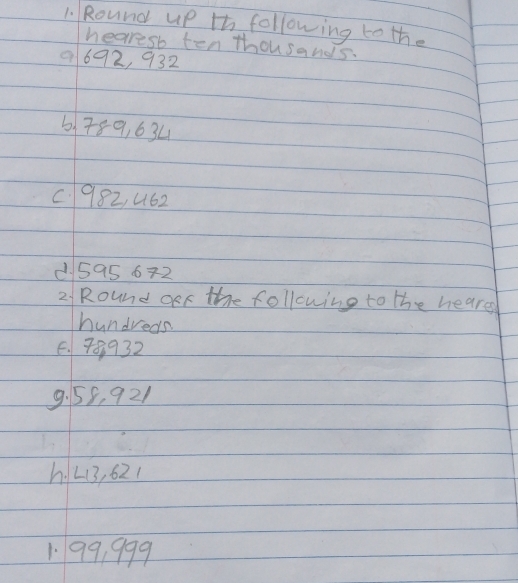 1. Round up th following to the
nearest ten thousands.
a 692, 932
b. 789,634
c. 982,462
d. 595 672
2. Round off the following to the neares
hundreds
f. 78,932
g. 58,921
h. 43,621
1. 99,999